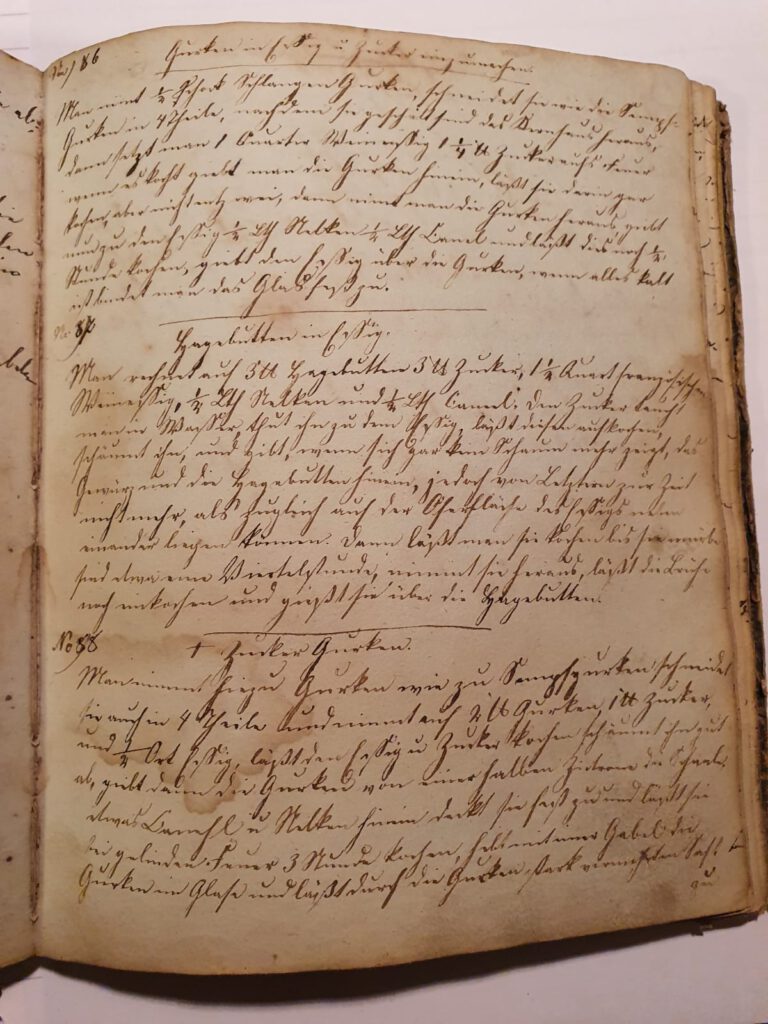 No 86 Gurken in Essig u Zucker einzumachen.
Man nimt ½ Schock Schlangen Gurken, schneidet sie wie die Senf-
Gurken in 4 Theile, nachdem sie geschält sind das Kernhaus heraus,
dann setzt man 1 Quartier Weinessig 1¼ ℔ Zucker aufs Feuer
wenn es kocht giebt man die Gurken hinein, läßt sie darin gar
kochen, aber nicht entzwei, dann nimt man die Gurken heraus, giebt
nun zu den Essig ½ Lth Nelken ½ Lth Canel und läßt dies noch ½
Stunde kochen, giebt den Essig über die Gurken, wenn alles kalt
ist bindet man das Glas fest zu.
No 87 Hagebutten in Essig.
Man rechnet auf 3 ℔ Hagebutten 3 ℔ Zucker, 1½ Quart französischen
Weinessig, ½ Lth Nelken und ½ Lth Caneel. Den Zucker taucht
man in Wasser thut ihn zu dem Essig, läßt diesen aufkochen,
schäumt ihn, und gibt, wenn sich gar kein Schaum mehr zeigt, das
Gewürz und die Hagebutten hinein, jedoch von Letztern zur Zeit
nicht mehr, als zugleich auf der Oberfläche des Essigs neben
einander liegen können. Dann läßt man sie kochen bis sie mürbe
sind etwa eine Viertelstunde, nimmt sie heraus, läßt die Brühe
noch einkochen und gießt sie über die Hagebutten.
No 88 † Zucker Gurken.
Man nimmt hiezu Gurken wie zu Senfgurken schneidet
sie auch in 4 Theile und nimmt auf 2 ℔ Gurken 1 ℔ Zucker,
und ½ Ort Essig, läßt den Essig u Zucker kochen schäumt ihn gut
ab, giebt dann die Gurken von einer halben Zitrone die Schaale,
etwas Canehl u Nelken hinein deckt sie fest zu und läßt sie
bei gelinden Feuer 3 Stunde kochen, hebt mit einer Gabel die
Gurken im Glase und läßt durch die Gurken stark vermehrten Saft
zu